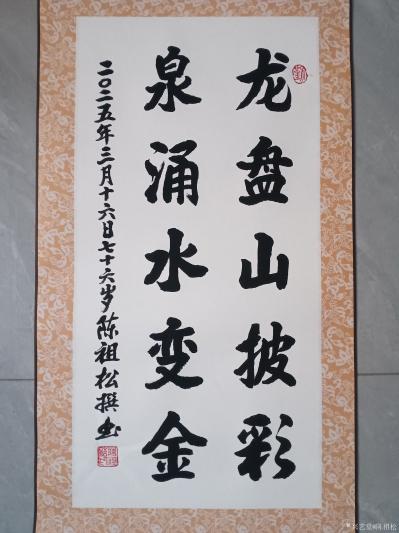 龙盘山披彩
泉涌水变金
二〇二五年三月十六日七十六岁陈祖松撰书